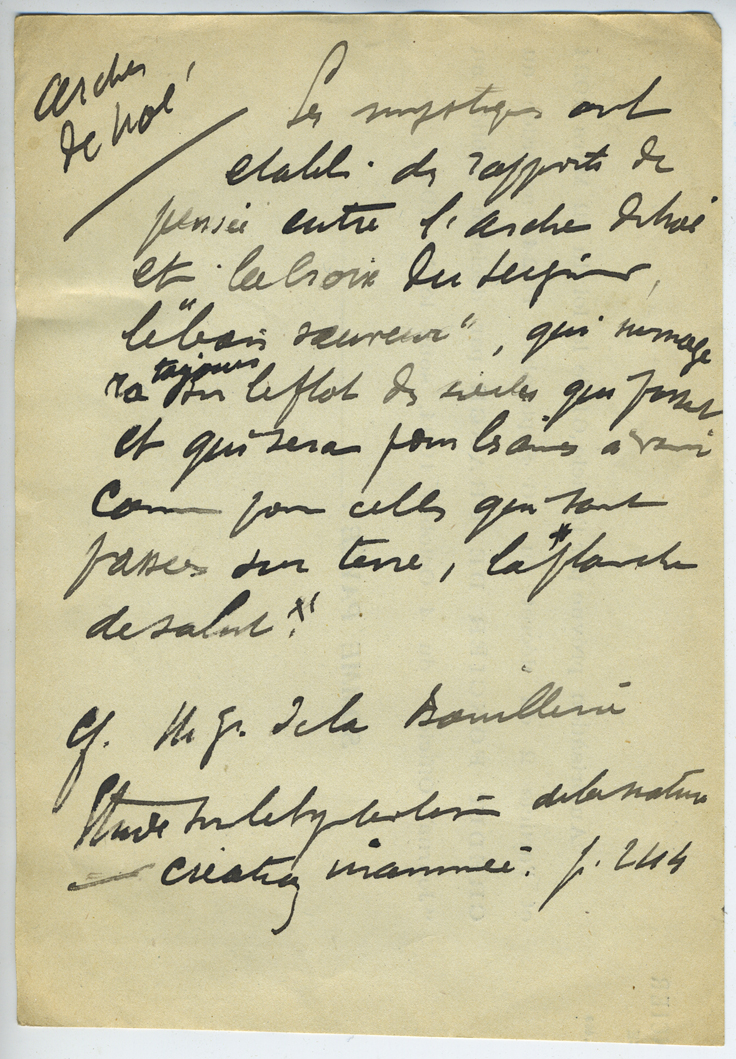 Arches
de Noé
Les mystiques ont
etabli des rapports de
pensée entre l'arche de Noé
et la Croix du Seigneur,
le "bois sauveur", qui surnage
ra toujours sur le flot des siècles qui passent
et qui sera pour les âmes à venir
comme pour celles qui sont
passées sur terre, la "planche
de salut".
Cf. Mgr. de la Bouillerie
Etude sur le symbolisme de la nature
création inanimée. p. 244